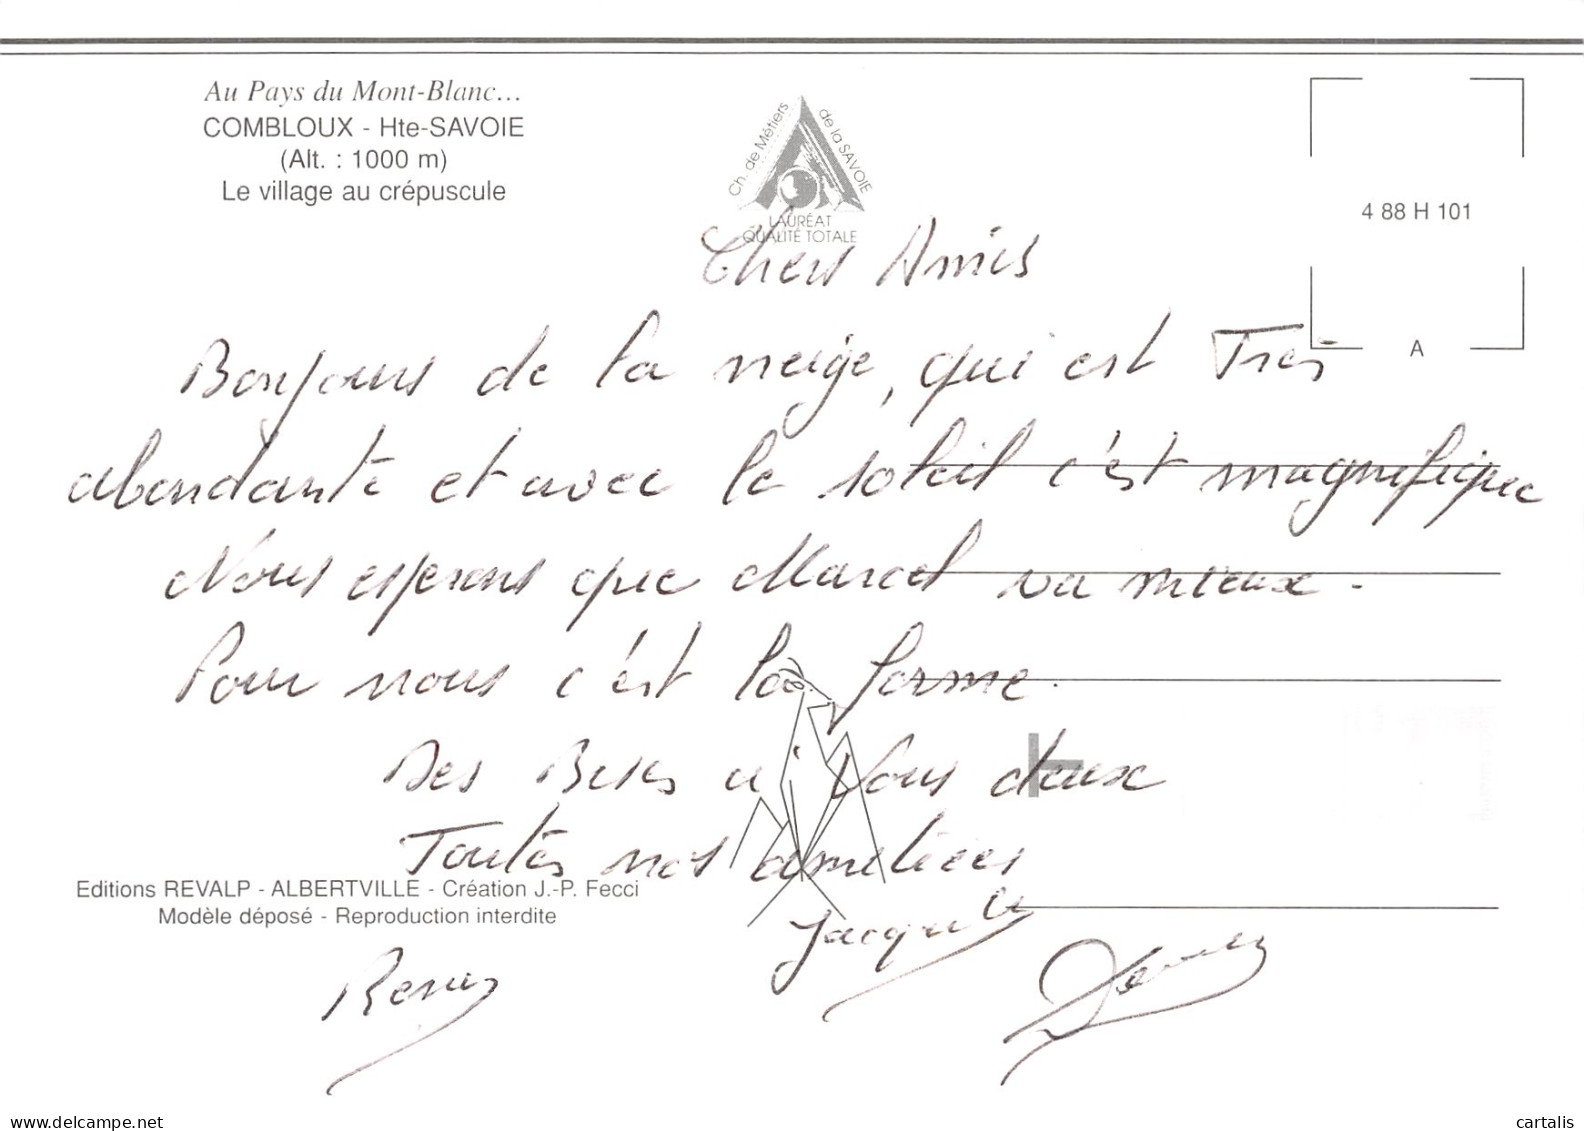 Au Pays du Mont-Blanc...
COMBLOUX - Hte-SAVOIE
(Alt. : 1000 m)
Le village au crépuscule
Ch. de Métiers de la SAVOIE
LAURÉAT
QUALITÉ TOTALE
4 88 H 101
A
Chers Amis
Bonjours de la neige, qui est Très
abondante et avec le soleil c'est magnifique
Nous esperons que Marcel va mieux.
Pour nous c'est la forme.
Des Bises a Vous deux
Toutes nos amitiées
Editions REVALP - ALBERTVILLE - Création J.-P. Fecci
Modèle déposé - Reproduction interdite
Jacqueline
delcampe.net
cartalis